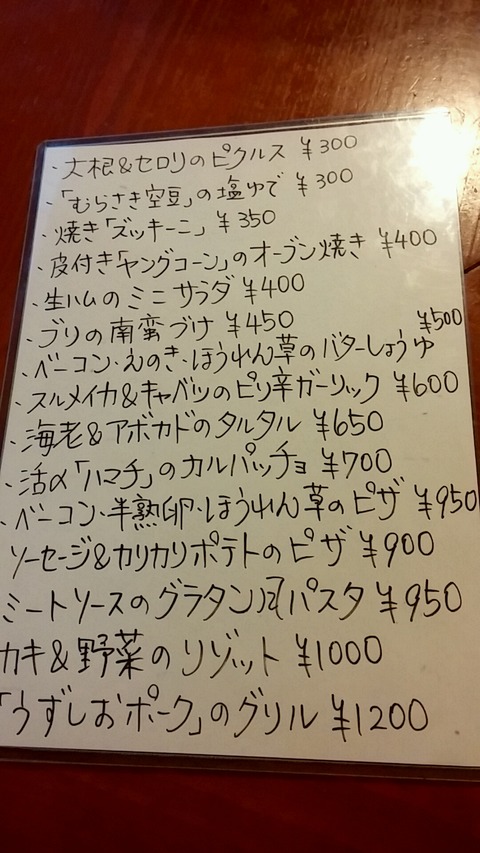 ・大根&セロリのピクルス ¥300
・「むらさき空豆」の塩ゆで ¥300
・焼き「ズッキーニ」 ¥350
・皮付き「ヤングコーン」のオーブン焼き ¥400
・生ハムのミニサラダ ¥400
・ブリの南蛮づけ ¥450
・ベーコン・えのき・ほうれん草のバターしょうゆ ¥500
・スルメイカ&キャベツのピリ辛ガーリック ¥600
・海老&アボカドのタルタル ¥650
・活〆「ハマチ」のカルパッチョ ¥700
・ベーコン・半熟卵・ほうれん草のピザ ¥950
ソーセージ&カリカリポテトのピザ ¥900
ミートソースのグラタン風パスタ ¥950
カキ&野菜のリゾット ¥1000
「うずしおポーク」のグリル ¥1200